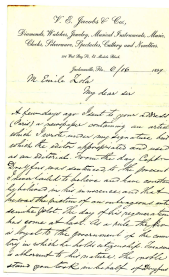 V. E. Jacobs & Co.,
Diamonds, Watches, Jewelry, Musical Instruments, Music,
Clocks, Silverware, Spectacles, Cutlery and Novelties,
Jacksonville, Fla., 6/16 189
M. Emile Zola
My dear sir
A few days ago I sent to your address
(Paris) a newspaper containing an article
which I wrote under my signature and
which the editor appropriated and used
as an editorial. From the day Capt
Dreyfus was sentenced to the present
I have failed to believe and have constantly
believed in his innocence and that he
was the victim of an outrageous and
senseless plot. The day of his vindication
has come at last. As a late
is loyal to the government of the
in which he holds citizenship
is adherent to his nature. The noble
stand you took in behalf of Dreyfus